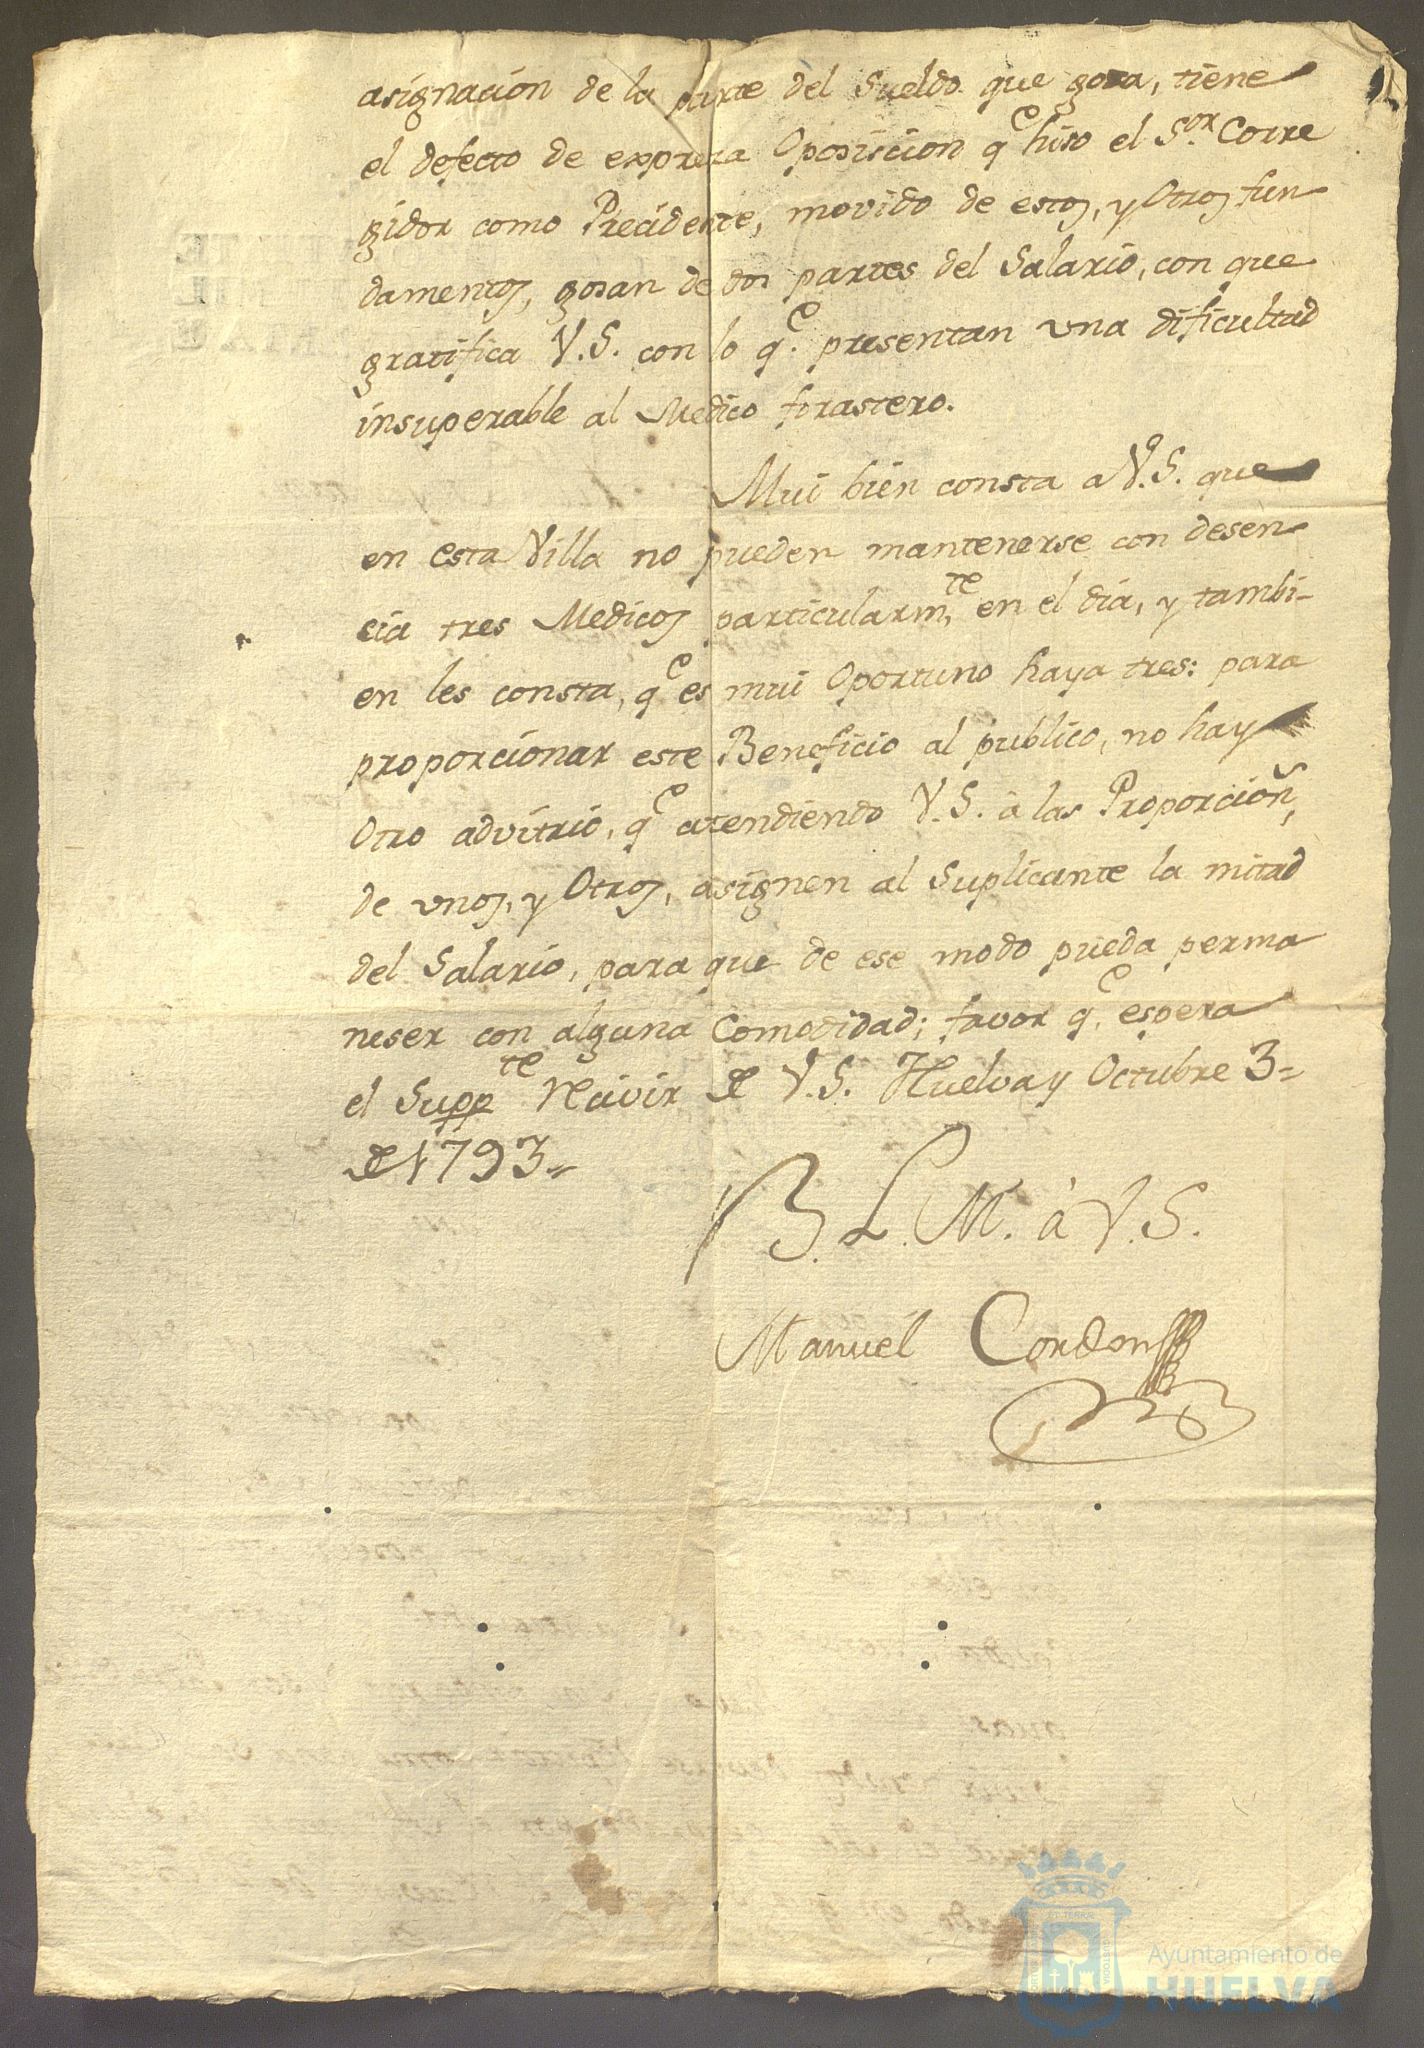 asignacion de la parte del Sueldo que goza, tiene
el defecto de expresa Oposiscion qe hiso el Sor. Corre
gidor como Precidente, movido de estos, y Otros fun
damentos, gosan de dos partes del Salario, con que
gratifica V.S. con lo qe. presentan una dificultad
insuperable al Medico forastero.
Mui bien consta a V.S. que
en esta Villa no pueden mantenerse con desen
cia tres Medicos particularmte. en el dia, y tambi-
en les consta, qe es mui Oportuno haya tres: para
proporcionar este Beneficio al publico, no hay
Otro advitrio, qe atendiendo V.S. à las Proporcions,
de unos, y Otros, asignen al Suplicante la mitad
del Salario, para que de ese modo pueda perma
neser con alguna Comodidad; favor qe. espera
el Suppte Recivir de V.S. Huelva y Octubre 3=
de 1793=
B. L. M. à V.S.
Manuel Cordon
Ayuntamiento de
HUELVA